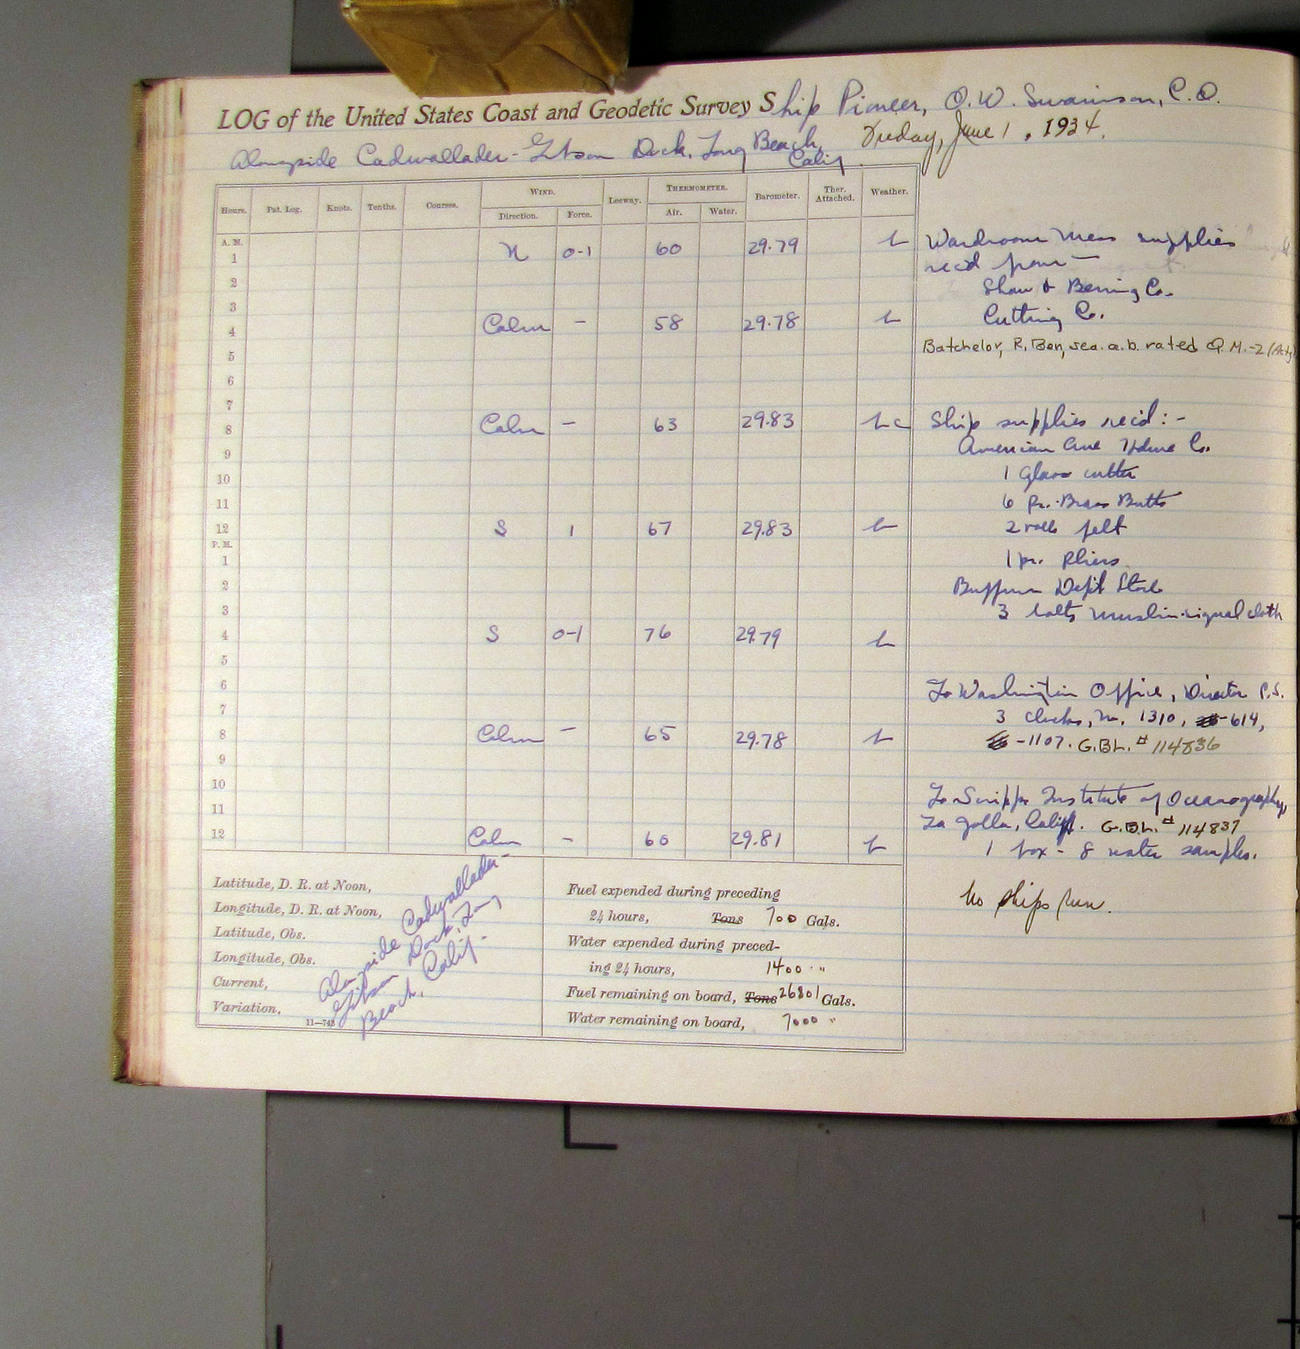 LOG of the United States Coast and Geodetic Survey Ship Pioneer, O.W. Swainson, C.O.
Alongside Cadwallader-Gibson Dock, Long Beach, Calif. Friday, June 1, 1934.
Hours. Pat. Log. Knots. Tenths. Courses. WIND. Leeway. THERMOMETER. Barometer. Ther. Attached. Weather.
Direction. Force. Air. Water.
A. M.
1 N 0-1 60 29.79 b
2
3
4 Calm - 58 29.78 b
5
6
7
8 Calm - 63 29.83 bc
9
10
11
12 S 1 67 29.83 b
P. M.
1
2
3
4 S 0-1 76 29.79 b
5
6
7
8 Calm - 65 29.78 b
9
10
11
12 Calm - 60 29.81 b
Wardroom Mess supplies
rec'd from-
Shaw & Bering Co.
Cutting Co.
Batchelor, R. Ben, sea. a.b. rated Q.M.-2 (Actg
Ship supplies rec'd:-
American Hdwe Co.
1 glass cutter
6 pr. Brass Butts
2 rolls felt
1 pr. pliers
Buffum Dept Store
3 bolts muslin-signal cloth
To Washington Office, Director C.S.
3 clocks, No. 1310, -614,
-1107. G.B.L. # 114836
To Scripps Institute of Oceanography,
La Jolla, Calif. G.B.L. # 114837
1 box - 8 water samples.
No ships run.
Latitude, D. R. at Noon,
Longitude, D. R. at Noon,
Latitude, Obs.
Longitude, Obs.
Current,
Variation,
11—743
Alongside Cadwallader-
Gibson Dock, Long
Beach, Calif.
Fuel expended during preceding
24 hours, Tons 700 Gals.
Water expended during preced-
ing 24 hours, 1400 "
Fuel remaining on board, Tons 26801 Gals.
Water remaining on board, 7000 "